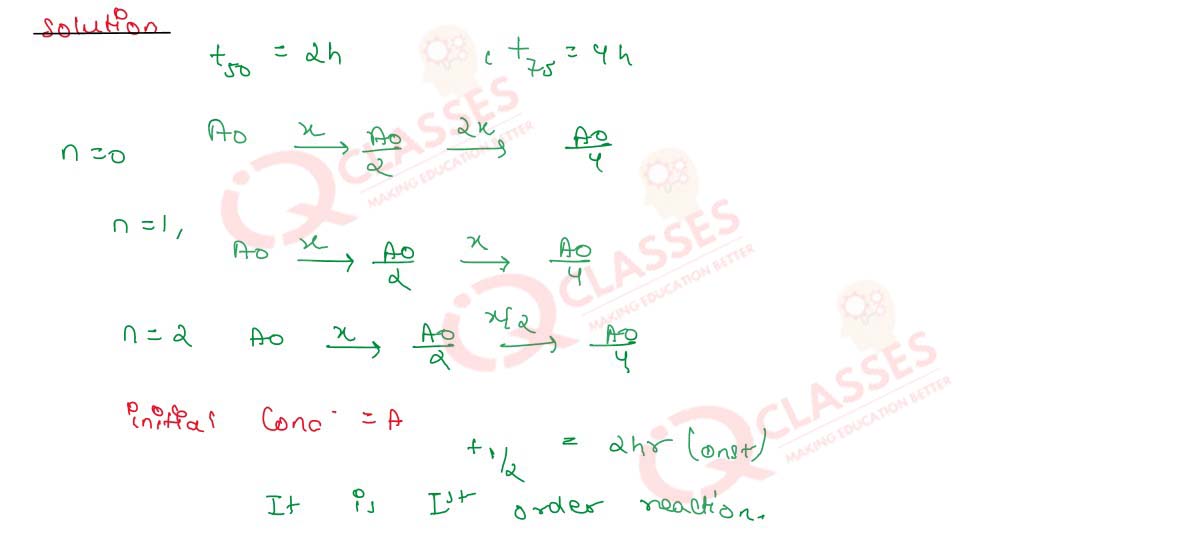 Solution
t50 = 2h , t75 = 4h
n=0 A0 x→ A0/2 2x→ A0/4
n=1, A0 x→ A0/2 x→ A0/4
n=2 A0 x→ A0/2 x/2→ A0/4
initial Conc = A
t1/2 = 2hr (const)
It is Ist order reaction.
IQ CLASSES
MAKING EDUCATION BETTER
IQ CLASSES
MAKING EDUCATION BETTER
IQ CLASSES
MAKING EDUCATION BETTER